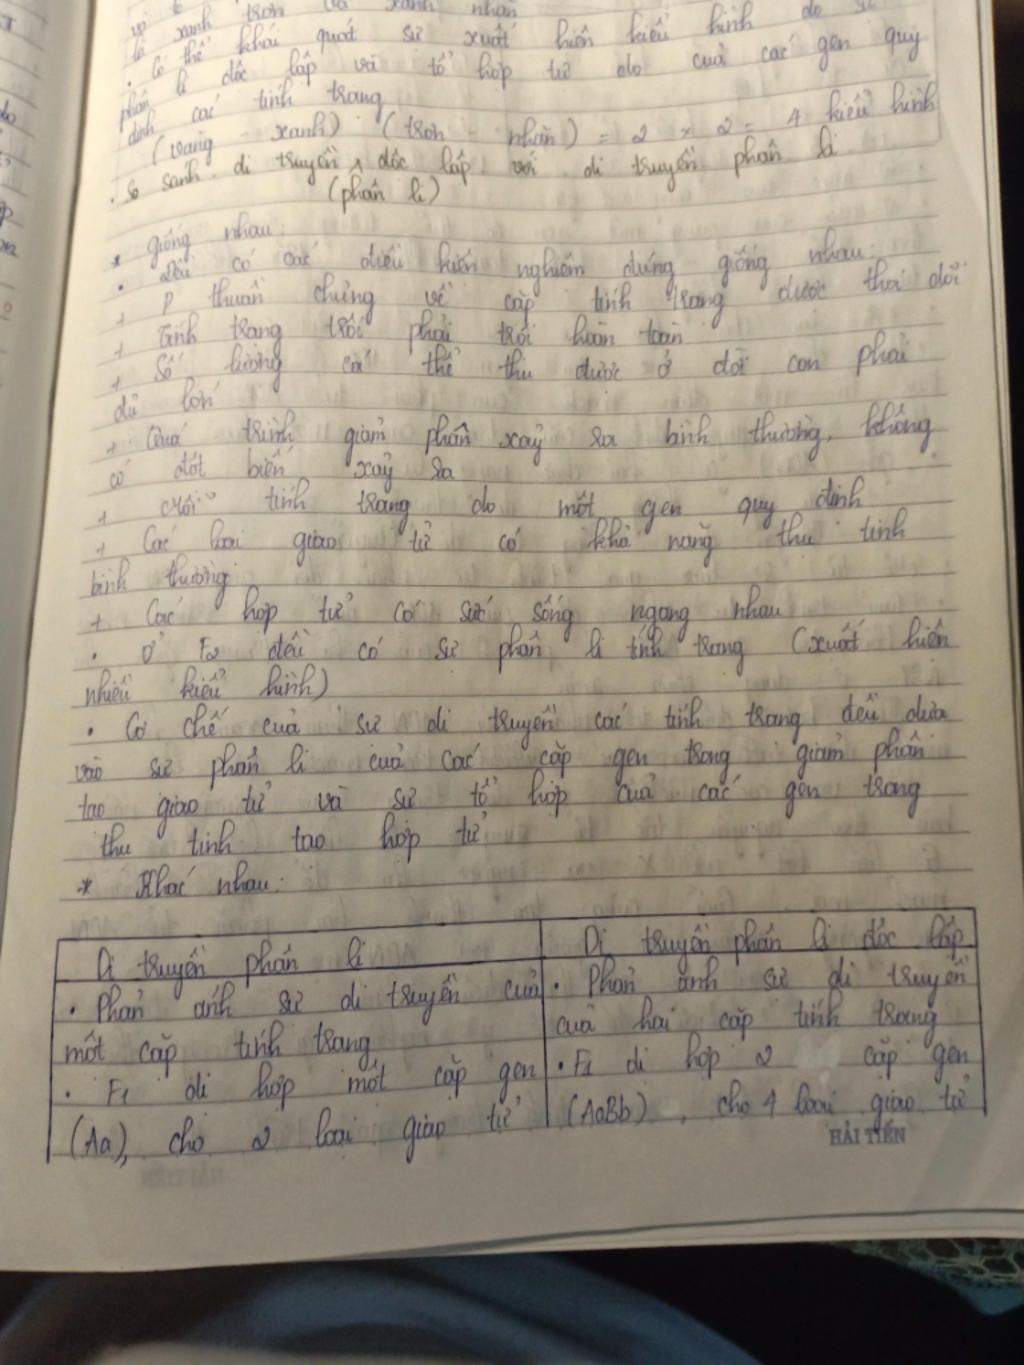 là xanh trơn và xanh nhăn
. Có thể khái quát sự xuất hiện kiểu hình do sự
phân li độc lập và tổ hợp tự do của các gen quy
định các tính trạng
(vàng - xanh) (trơn - nhăn) = 2 x 2 = 4 kiểu hình
. So sánh di truyền độc lập với di truyền phân li
(phân li)
* giống nhau:
. Đều có các điều kiện nghiệm đúng giống nhau:
+ P thuần chủng về cặp tính trạng được theo dõi
+ Tính trạng trội phải trội hoàn toàn
+ Số lượng cá thể thu được ở đời con phải
đủ lớn
+ Quá trình giảm phân xảy ra bình thường, không
có đột biến xảy ra
+ Mỗi tính trạng do một gen quy định
+ Các loại giao tử có khả năng thụ tinh
bình thường
+ Các hợp tử có sức sống ngang nhau
. Ở F2 đều có sự phân li tính trạng (xuất hiện
nhiều kiểu hình)
. Cơ chế của sự di truyền các tính trạng đều dựa
vào sự phân li của các cặp gen trong giảm phân
tạo giao tử và sự tổ hợp của các gen trong
thụ tinh tạo hợp tử
* Khác nhau:
Di truyền phân li
. Phản ánh sự di truyền của
một cặp tính trạng
. F1 dị hợp một cặp gen
(Aa), cho 2 loại giao tử
Di truyền phân li độc lập
. Phản ánh sự di truyền
của hai cặp tính trạng
. F1 dị hợp 2 cặp gen
(AaBb), cho 4 loại giao tử
HẢI TIẾN